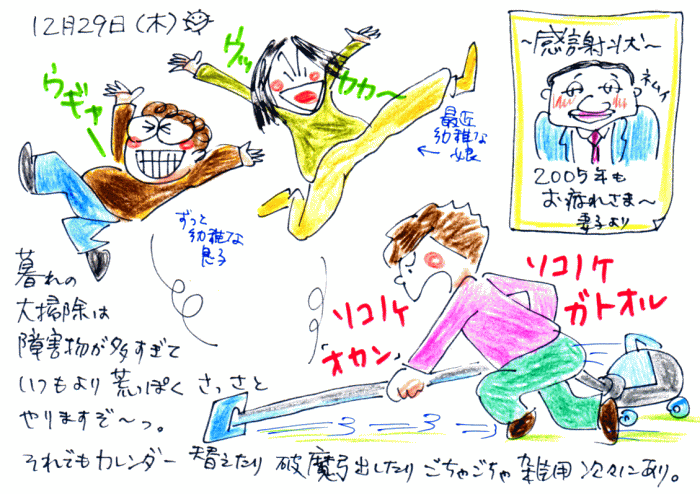 12月29日(木)
ウッ
カカ〜
ウギャー
最近
幼稚な
娘
←
ずっと
幼稚な
息子
〜感謝状〜
ネムイ
2005年も
お疲れさま〜
妻子より
ソコノケ
「オカン」
ソコノケ
ガトオル
暮れの
大掃除は
障害物が多すぎて
いつもより荒っぽくさっさと
やりますぞ〜っ。
それでもカレンダー替えたり破魔弓出したりごちゃごちゃ雑用次々にあり。